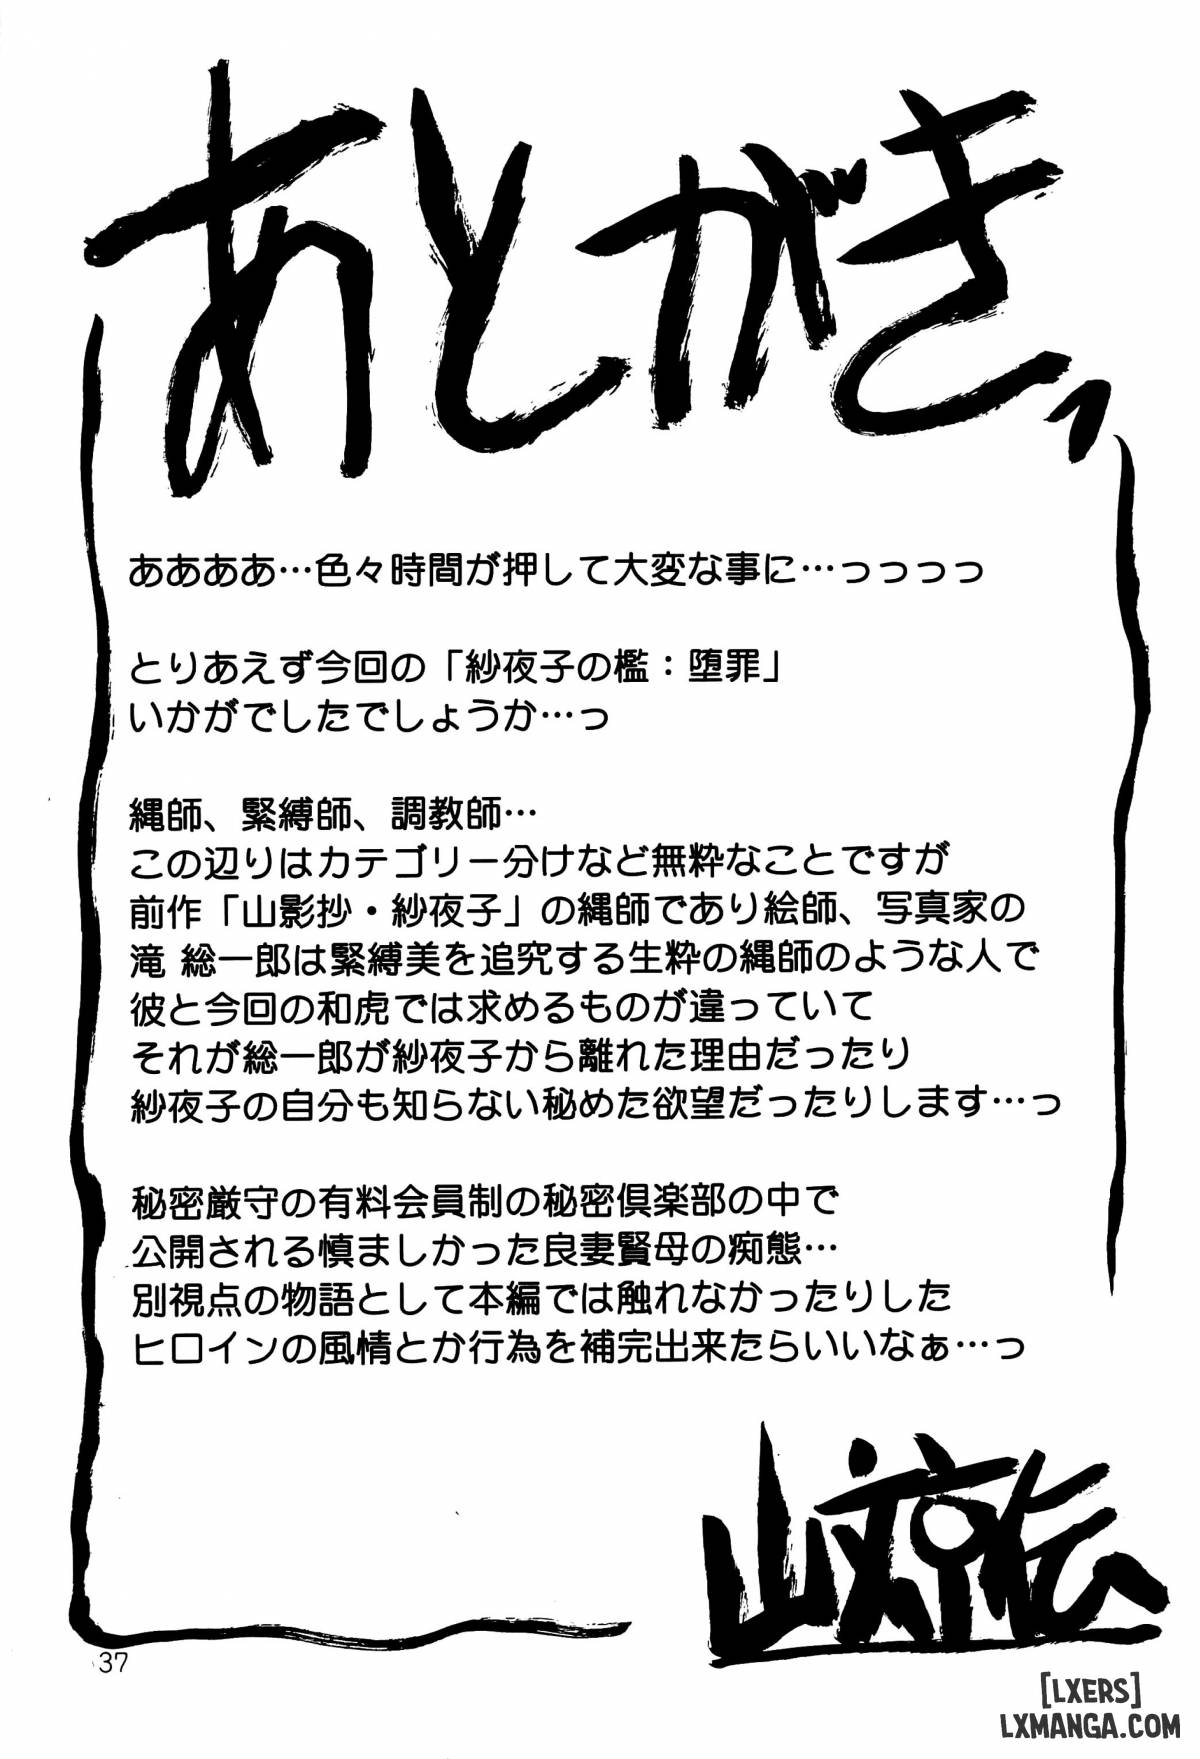 あとがきっ
ああああ…色々時間が押して大変な事に…っっっっ
とりあえず今回の「紗夜子の檻：堕罪」
いかがでしたでしょうか…っ
縄師、緊縛師、調教師…
この辺りはカテゴリー分けなど無粋なことですが
前作「山影抄・紗夜子」の縄師であり絵師、写真家の
滝 総一郎は緊縛美を追究する生粋の縄師のような人で
彼と今回の和虎では求めるものが違っていて
それが総一郎が紗夜子から離れた理由だったり
紗夜子の自分も知らない秘めた欲望だったりします…っ
秘密厳守の有料会員制の秘密倶楽部の中で
公開される慎ましかった良妻賢母の痴態…
別視点の物語として本編では触れなかったりした
ヒロインの風情とか行為を補完出来たらいいなぁ…っ
山文京伝
37
[LXERS]
LXMANGA.COM